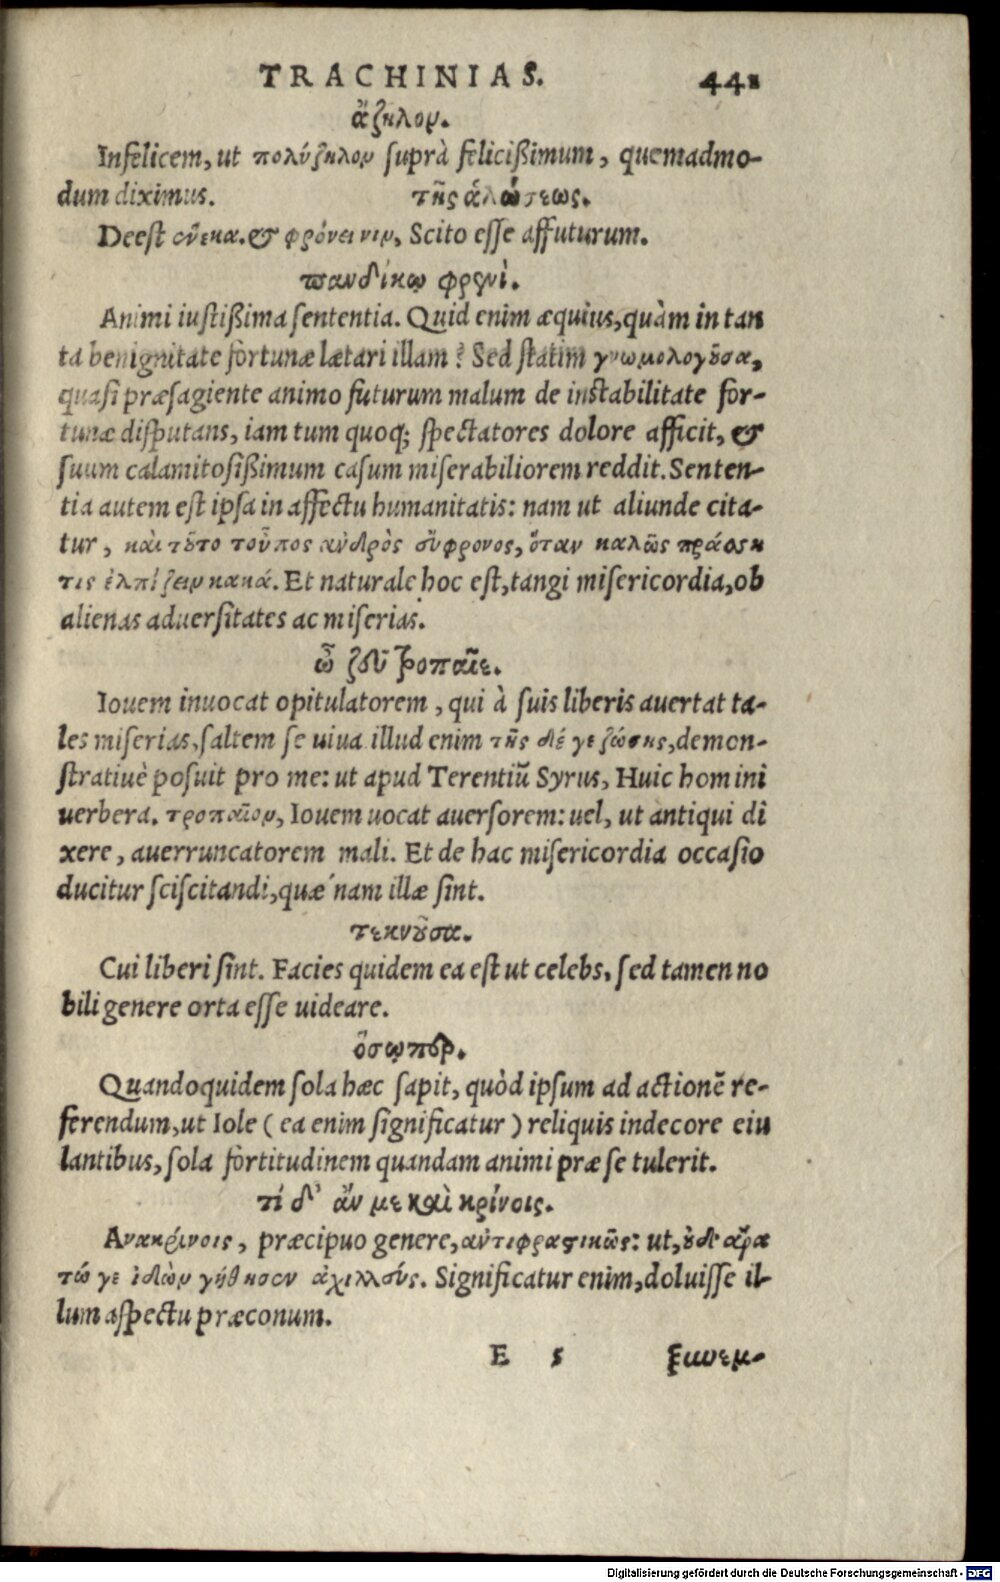 TRACHINIAS. 441
ἄζηλον.
Infelicem, ut πολύζηλον suprà felicißimum, quemadmo-
dum diximus. τῆς ἁλώσεως.
Deest οὕνεκα. & φρόνει νιν, Scito esse affuturum.
πανδίκῳ φρενὶ.
Animi iustißima sententia. Quid enim æquius, quàm in tan
ta benignitate fortunæ lætari illam? Sed statim γνωμολογοῦσα,
quasi præsagiente animo futurum malum de instabilitate for-
tunæ disputans, iam tum quoq; spectatores dolore afficit, &
suum calamitosißimum casum miserabiliorem reddit. Senten-
tia autem est ipsa in affectu humanitatis: nam ut aliunde cita-
tur, καὶ τοῦτο τοὖπος ἀνδρὸς σύφρονος, ὅταν καλῶς πράσσῃ
τις ἐλπίζειν κακά. Et naturale hoc est, tangi misericordia, ob
alienas aduersitates ac miserias.
ὦ ζεῦ τροπαῖε.
Iouem inuocat opitulatorem, qui à suis liberis auertat ta-
les miserias, saltem se uiua illud enim τῆς δέ γε ζώσης, demon-
stratiuè posuit pro me: ut apud Terentiũ Syrus, Huic homini
uerbera. τροπαῖον, Iouem uocat auersorem: uel, ut antiqui di
xere, auerruncatorem mali. Et de hac misericordia occasio
ducitur sciscitandi, quæ nam illæ sint.
τεκνοῦσα.
Cui liberi sint. Facies quidem ea est ut celebs, sed tamen no
bili genere orta esse uideare.
ὅσῳπερ.
Quandoquidem sola hæc sapit, quòd ipsum ad actionẽ re-
ferendum, ut Iole (ea enim significatur) reliquis indecore eiu
lantibus, sola fortitudinem quandam animi præ se tulerit.
τί δ' ἄν με καὶ κρίνοις.
Ανακρίνοις, præcipuo genere, ἀντιφραστικῶς: ut, οὐδ' ἄρα
τώ γε ἰδὼν γήθησεν ἀχιλλεύς. Significatur enim, doluisse il-
lum aspectu præconum.
E 5 ξυνεμ-
Digitalisierung gefördert durch die Deutsche Forschungsgemeinschaft - DFG